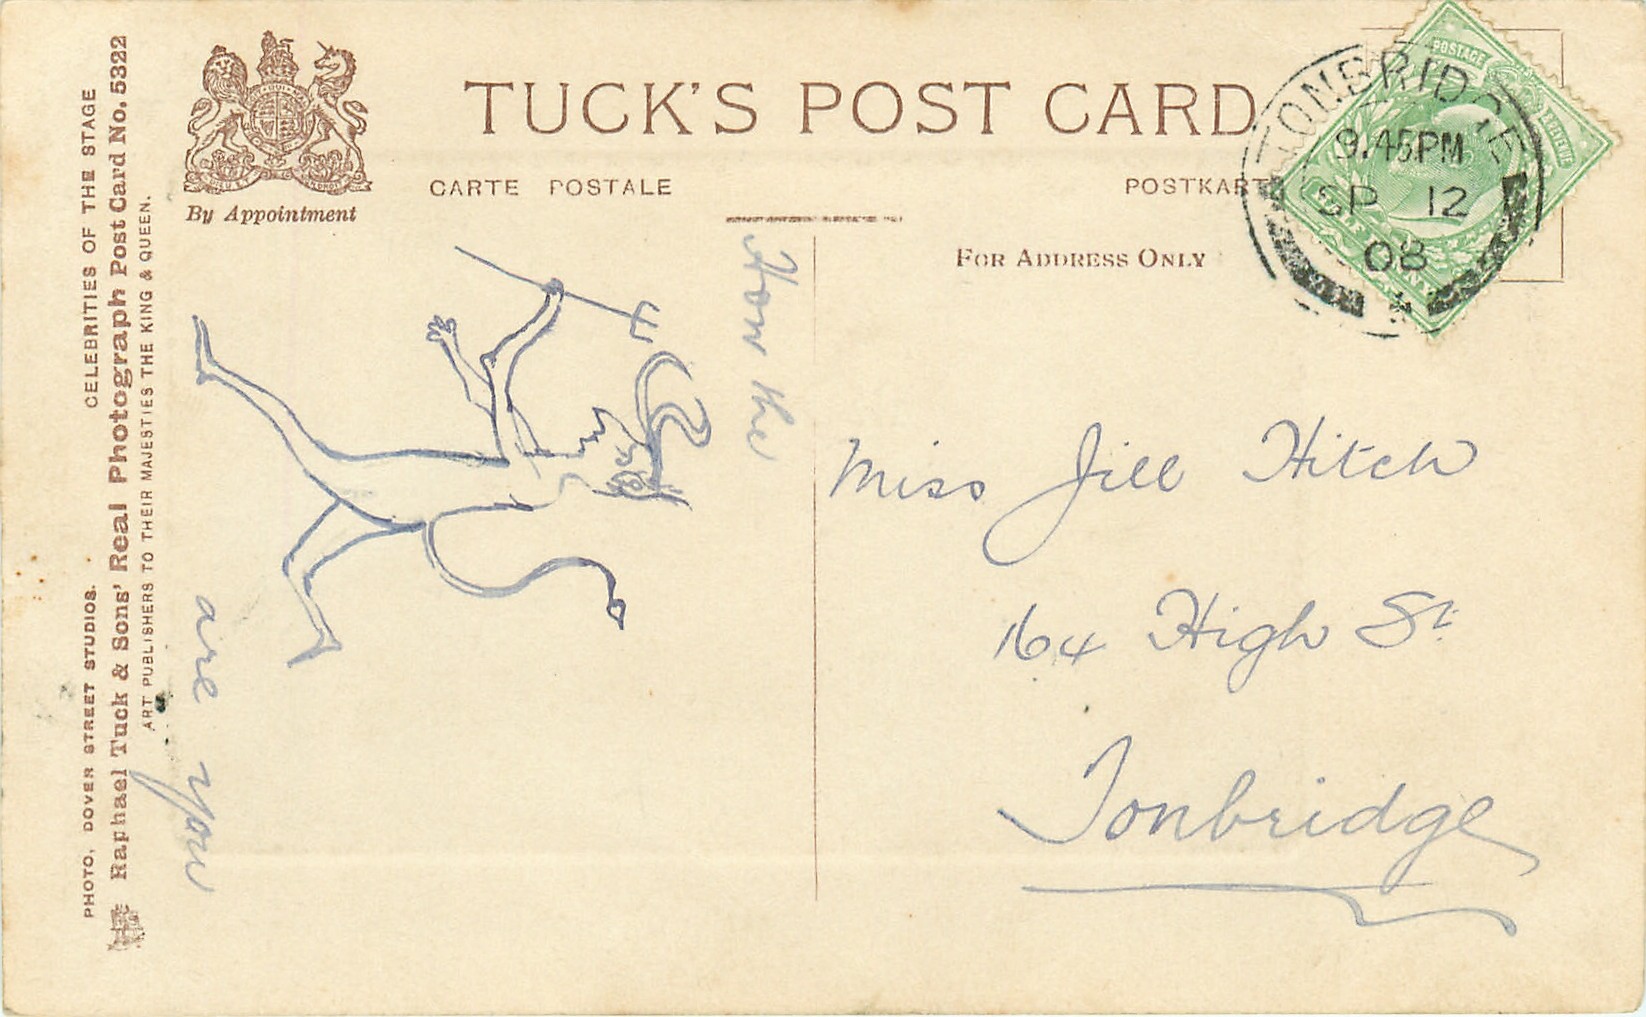 TUCK'S POST CARD
CARTE POSTALE
POSTKART
By Appointment
FOR ADDRESS ONLY
POSTAGE
TONBRIDGE
9.45PM
SP 12
08
CELEBRITIES OF THE STAGE
PHOTO. DOVER STREET STUDIOS.
Raphael Tuck & Sons' Real Photograph Post Card No. 5322
ART PUBLISHERS TO THEIR MAJESTIES THE KING & QUEEN.
How the
are you
Miss Jill Hitch
164 High St
Tonbridge